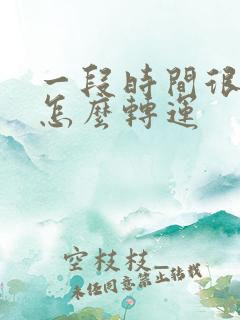 一段時間很
怎麼轉運
空枝枝_
未任同意禁止转载